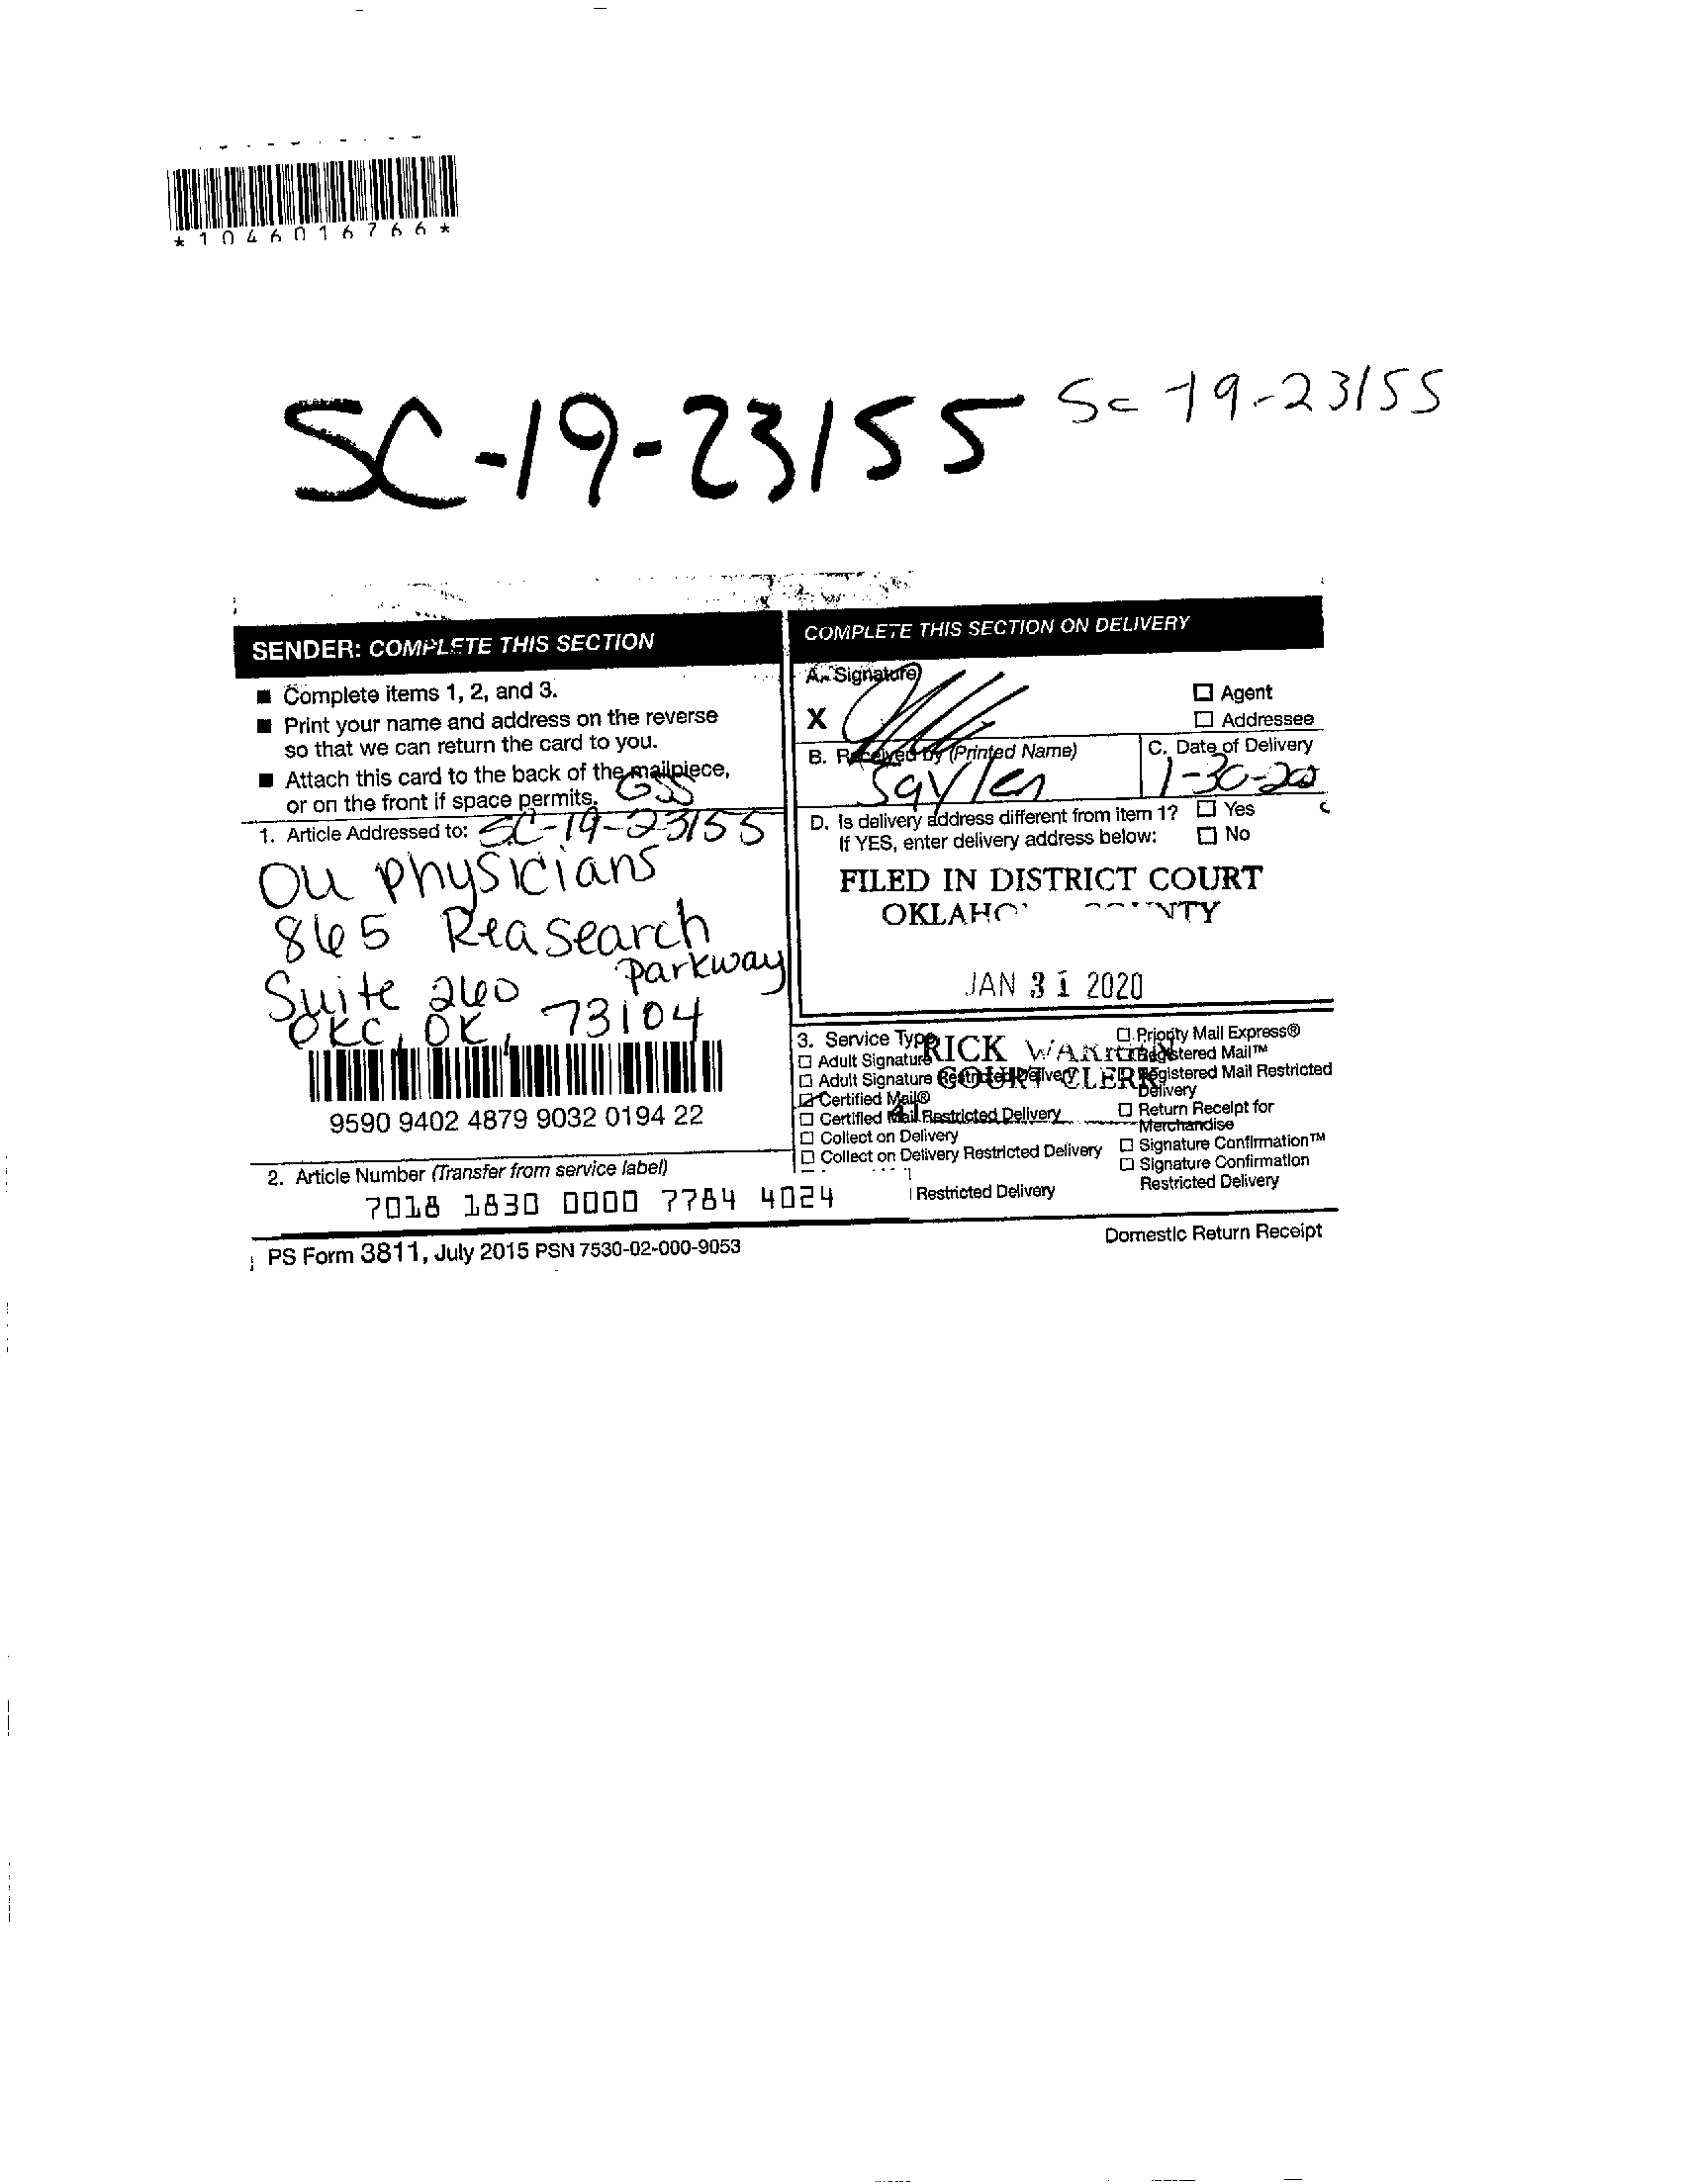 *1046016766*
SC-19-23155
Sc-19-23155
SENDER: COMPLETE THIS SECTION
■ Complete items 1, 2, and 3.
■ Print your name and address on the reverse
so that we can return the card to you.
■ Attach this card to the back of the mailpiece,
or on the front if space permits.
GSS
1. Article Addressed to: SC-19-23155
OU physicians
865 Reasearch
Parkway
Suite 260
OKC, OK, 73104
9590 9402 4879 9032 0194 22
2. Article Number (Transfer from service label)
7018 1830 0000 7784 4024
COMPLETE THIS SECTION ON DELIVERY
A. Signature
X
☐ Agent
☐ Addressee
B. Received by (Printed Name)
C. Date of Delivery
Saylen
1-30-20
D. Is delivery address different from item 1? ☐ Yes
If YES, enter delivery address below: ☐ No
FILED IN DISTRICT COURT
JAN 31 2020
RICK WARREN
COURT CLERK
41
3. Service Type
☐ Adult Signature
☐ Adult Signature Restricted Delivery
☑ Certified Mail®
☐ Certified Mail Restricted Delivery
☐ Collect on Delivery
☐ Collect on Delivery Restricted Delivery
Restricted Delivery
☐ Priority Mail Express®
☐ Registered Mail™
☐ Registered Mail Restricted
Delivery
☐ Return Receipt for
Merchandise
☐ Signature Confirmation™
☐ Signature Confirmation
Restricted Delivery
PS Form 3811, July 2015 PSN 7530-02-000-9053
Domestic Return Receipt